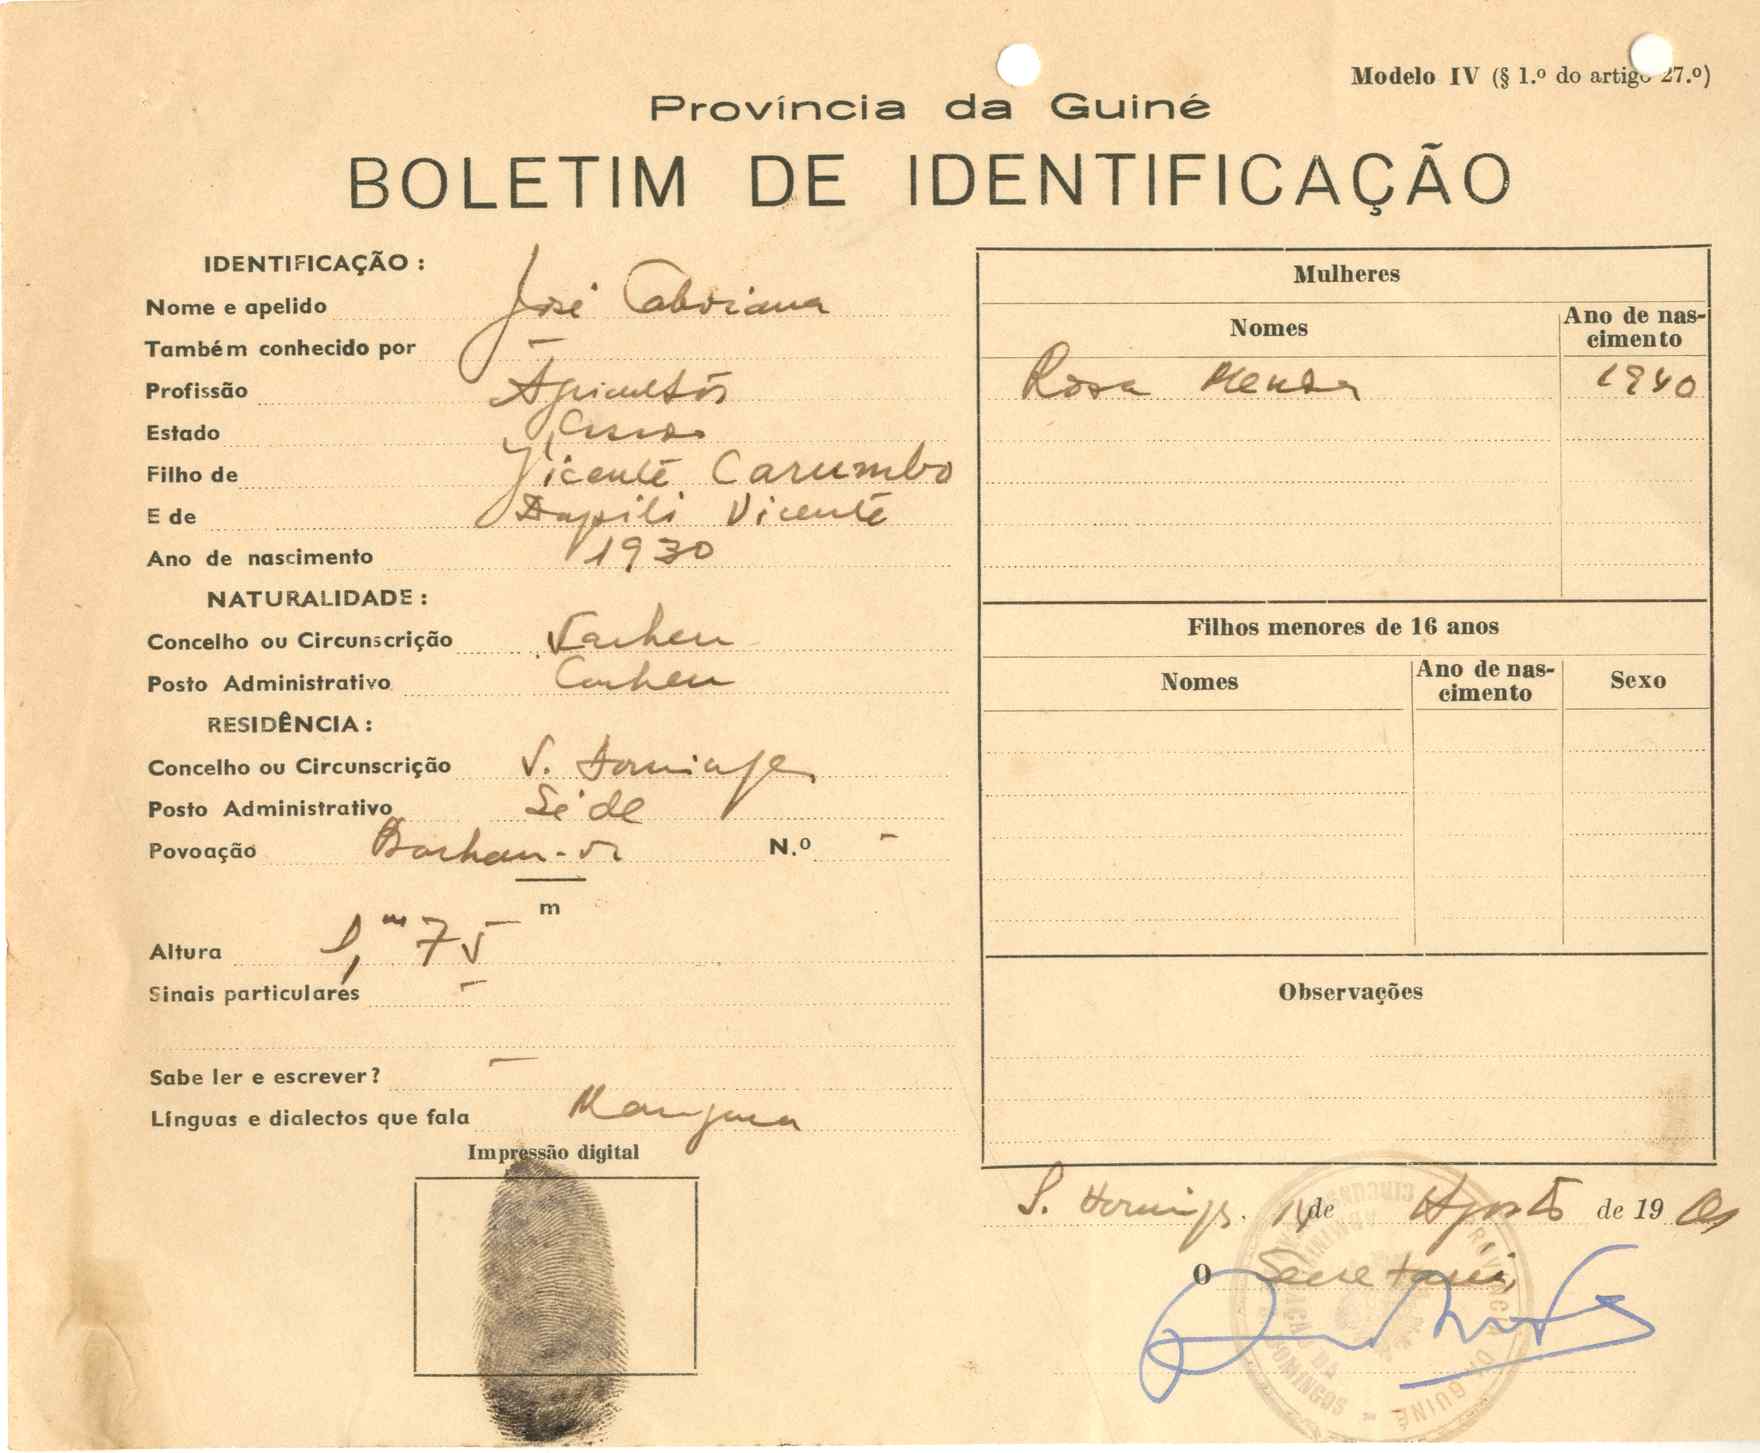 Modelo IV (§ 1.º do artigo 27.º)
Província da Guiné
BOLETIM DE IDENTIFICAÇÃO
IDENTIFICAÇÃO :
Nome e apelido José Caboiana
Também conhecido por -
Profissão Agricultór
Estado
Filho de Vicente Carumbo
E de Dapili Vicente
Ano de nascimento 1930
NATURALIDADE :
Concelho ou Circunscrição Cacheu
Posto Administrativo Cacheu
RESIDÊNCIA :
Concelho ou Circunscrição S. Domingos
Posto Administrativo Séde
Povoação N.º -
m
Altura 1,m75
Sinais particulares -
Sabe ler e escrever? -
Línguas e dialectos que fala
Impressão digital
Mulheres
Nomes Ano de nas-
cimento
Rosa 1940
Filhos menores de 16 anos
Nomes Ano de nas-
cimento Sexo
Observações
S. Domingos. 14 de Agosto de 19
O Secretario,